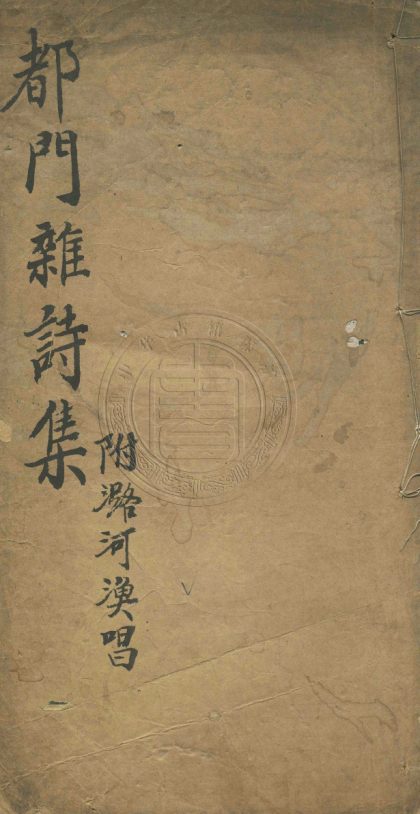 都門雜詩集
附潞河漁唱